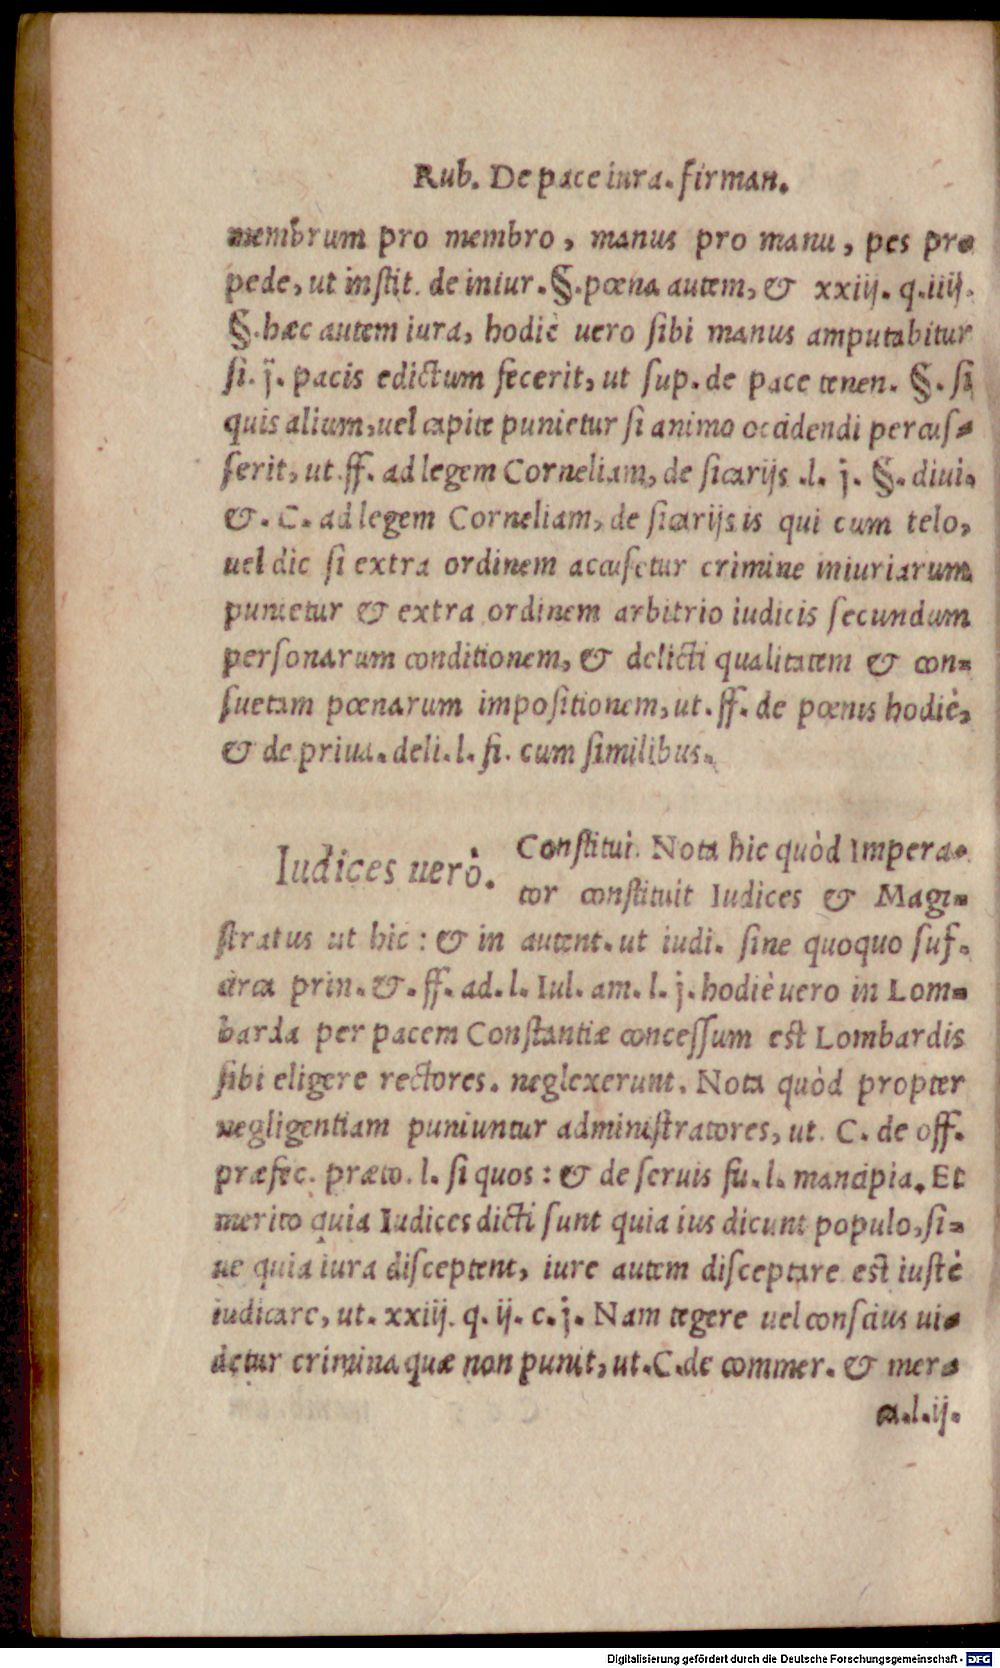 Rub. De pace iura. firman.
membrum pro membro, manus pro manu, pes pro
pede, ut instit. de iniur. §. pœna autem, & xxiij. q. iiij.
§. hæc autem iura, hodiè uero sibi manus amputabitur
si. j. pacis edictum fecerit, ut sup. de pace tenen. §. si
quis alium, uel capite punietur si animo occidendi percus-
serit, ut. ff. ad legem Corneliam, de sicarijs .l. j. §. diui.
&. C. ad legem Corneliam, de sicarijs is qui cum telo,
uel dic si extra ordinem accusetur crimine iniuriarum
punietur & extra ordinem arbitrio iudicis secundum
personarum conditionem, & delicti qualitatem & con-
suetam pœnarum impositionem, ut. ff. de pœnis hodiè,
& de priua. deli. l. fi. cum similibus.
Iudices uerò. Constitui. Nota hic quòd Impera-
tor constituit Iudices & Magi-
stratus ut hic: & in autent. ut iudi. sine quoquo suf.
circa prin. &. ff. ad. l. Iul. am. l. j. hodiè uero in Lom-
barda per pacem Constantiæ concessum est Lombardis
sibi eligere rectores. neglexerunt. Nota quòd propter
negligentiam puniuntur administratores, ut. C. de off.
præfec. præto. l. si quos: & de seruis fu. l. mancipia. Et
merito quia Iudices dicti sunt quia ius dicunt populo, si-
ue quia iura disceptent, iure autem disceptare est iustè
iudicare, ut. xxiij. q. ij. c. j. Nam tegere uel conscius ui-
detur crimina quæ non punit, ut. C. de commer. & mer-
ca. l. ij.
Digitalisierung gefördert durch die Deutsche Forschungsgemeinschaft - DFG